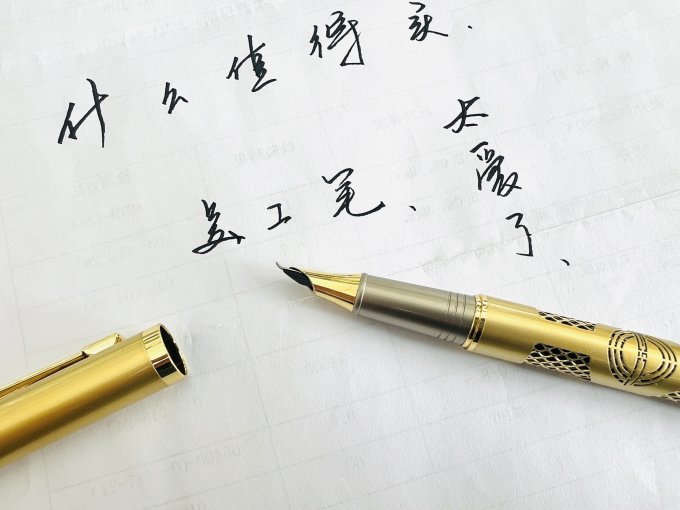 什么值得买.
美工笔、
太爱了、